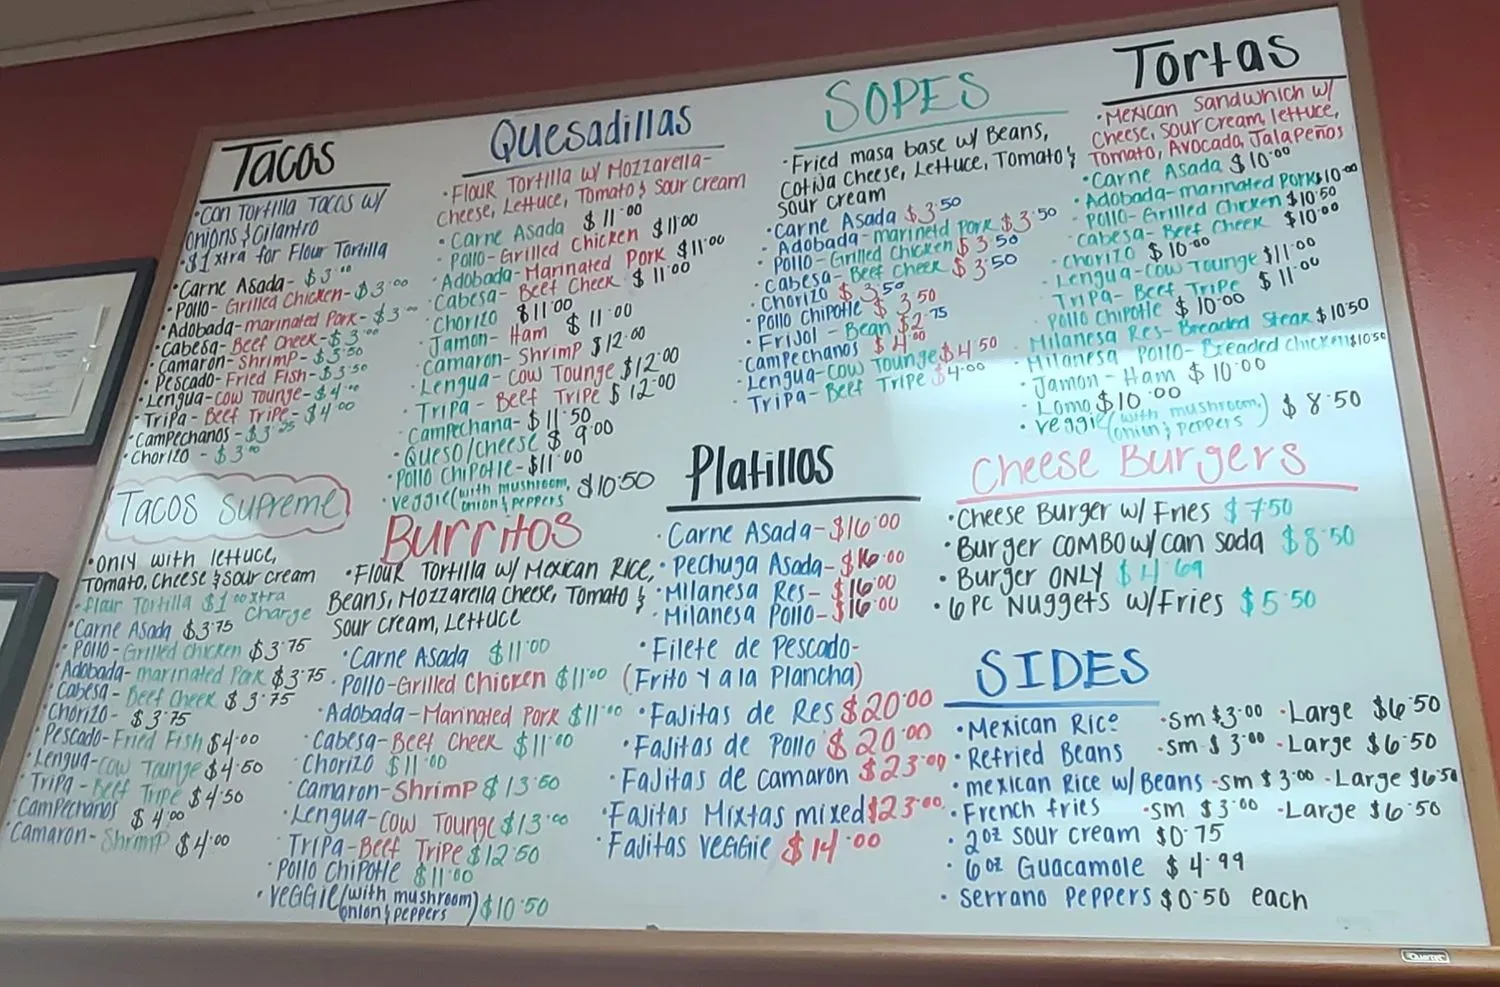 Tacos
•Con Tortilla Tacos w/
Onions & Cilantro
•$1 xtra for Flour Tortilla
•Carne Asada- $3.00
•Pollo- Grilled Chicken- $3.00
•Adobada- marinated Pork- $3.00
•Cabesa- Beef Cheek- $3.00
•Camaron- Shrimp- $3.50
•Pescado- Fried Fish- $3.50
•Lengua- cow Tounge- $4.00
•Tripa- Beef Tripe- $4.00
•Campechanos- $3.25
•Chorizo - $3.00
Tacos Supreme
•Only with lettuce,
Tomato, Cheese & Sour cream
•flour Tortilla $1.00 xtra
Charge
•Carne Asada $3.75
•Pollo- Grilled Chicken $3.75
•Adobada- marinated Pork $3.75
•Cabesa- Beef Cheek $3.75
•Chorizo- $3.75
•Pescado- Fried Fish $4.00
•Lengua- cow Tounge $4.50
•Tripa- Beef Tripe $4.50
•Campechanos $4.00
•Camaron- Shrimp $4.00
Quesadillas
•Flour Tortilla w/ Mozzarella-
Cheese, Lettuce, Tomato & Sour Cream
•Carne Asada $11.00
•Pollo- Grilled Chicken $11.00
•Adobada- Marinated Pork $11.00
•Cabesa- Beef Cheek $11.00
•Chorizo $11.00
•Jamon- Ham $11.00
•Camaron- Shrimp $12.00
•Lengua- Cow Tounge $12.00
•Tripa- Beef Tripe $12.00
•Campechana- $11.50
•Queso/cheese $9.00
•Pollo Chipotle- $11.00
•veggie (with mushroom, onion & peppers $10.50
Burritos
•Flour Tortilla w/ Mexican Rice,
Beans, Mozzarella Cheese, Tomato &
Sour cream, Lettuce
•Carne Asada $11.00
•Pollo-Grilled Chicken $11.00
•Adobada-Marinated Pork $11.00
•Cabesa-Beef Cheek $11.00
•Chorizo $11.00
•Camaron-Shrimp $13.50
•Lengua-cow Tounge $13.00
•Tripa-Beef Tripe $12.50
•Pollo Chipotle $11.00
•Veggie (with mushroom) onion & peppers $10.50
SOPES
•Fried masa base w/ Beans,
Cotija Cheese, Lettuce, Tomato &
Sour cream
•Carne Asada $3.50
•Adobada- marinetd Pork $3.50
•Pollo- Grilled Chicken $3.50
•Cabesa- Beef Cheek $3.50
•Chorizo $3.50
•Pollo Chipotle $3.50
•Frijol - Bean $2.75
•Campechanos $4.00
•Lengua-Cow Tounge $4.50
•Tripa- Beef Tripe $4.00
Platillos
•Carne Asada- $16.00
•Pechuga Asada- $16.00
•Milanesa Res- $16.00
•Milanesa Pollo- $16.00
•Filete de Pescado-
(Frito Y a la Plancha)
•Fajitas de Res $20.00
•Fajitas de Pollo $20.00
•Fajitas de Camaron $23.00
•Fajitas Mixtas mixed $23.00
•Fajitas veggie $14.00
Tortas
•Mexican Sandwhich w/
Cheese, Sour Cream, lettuce,
Tomato, Avocado, Jalapeños
•Carne Asada $10.00
•Adobada-marinated Pork $10.00
•Pollo-Grilled Chicken $10.50
•Cabesa- Beef Cheek $10.00
•Chorizo $10.00
•Lengua-Cow Tounge $11.00
•Tripa- Beef Tripe $11.00
•Pollo Chipotle $10.00
•Milanesa Res- Breaded Steak $10.50
•Milanesa Pollo- Breaded chicken $10.50
•Jamon - Ham $10.00
•Lomo $10.00
•veggie (with mushroom, onion & peppers) $8.50
Cheese Burgers
•Cheese Burger w/ Fries $7.50
•Burger COMBO w/ can soda $8.50
•Burger ONLY $4.69
•6 PC Nuggets w/Fries $5.50
SIDES
•Mexican Rice •Sm $3.00 •Large $6.50
•Refried Beans •Sm $3.00 •Large $6.50
•mexican Rice w/Beans -Sm $3.00 •Large $6.50
•French fries •Sm $3.00 •Large $6.50
•2oz Sour cream $0.75
•6oz Guacamole $4.99
•Serrano Peppers $0.50 each
Quartet